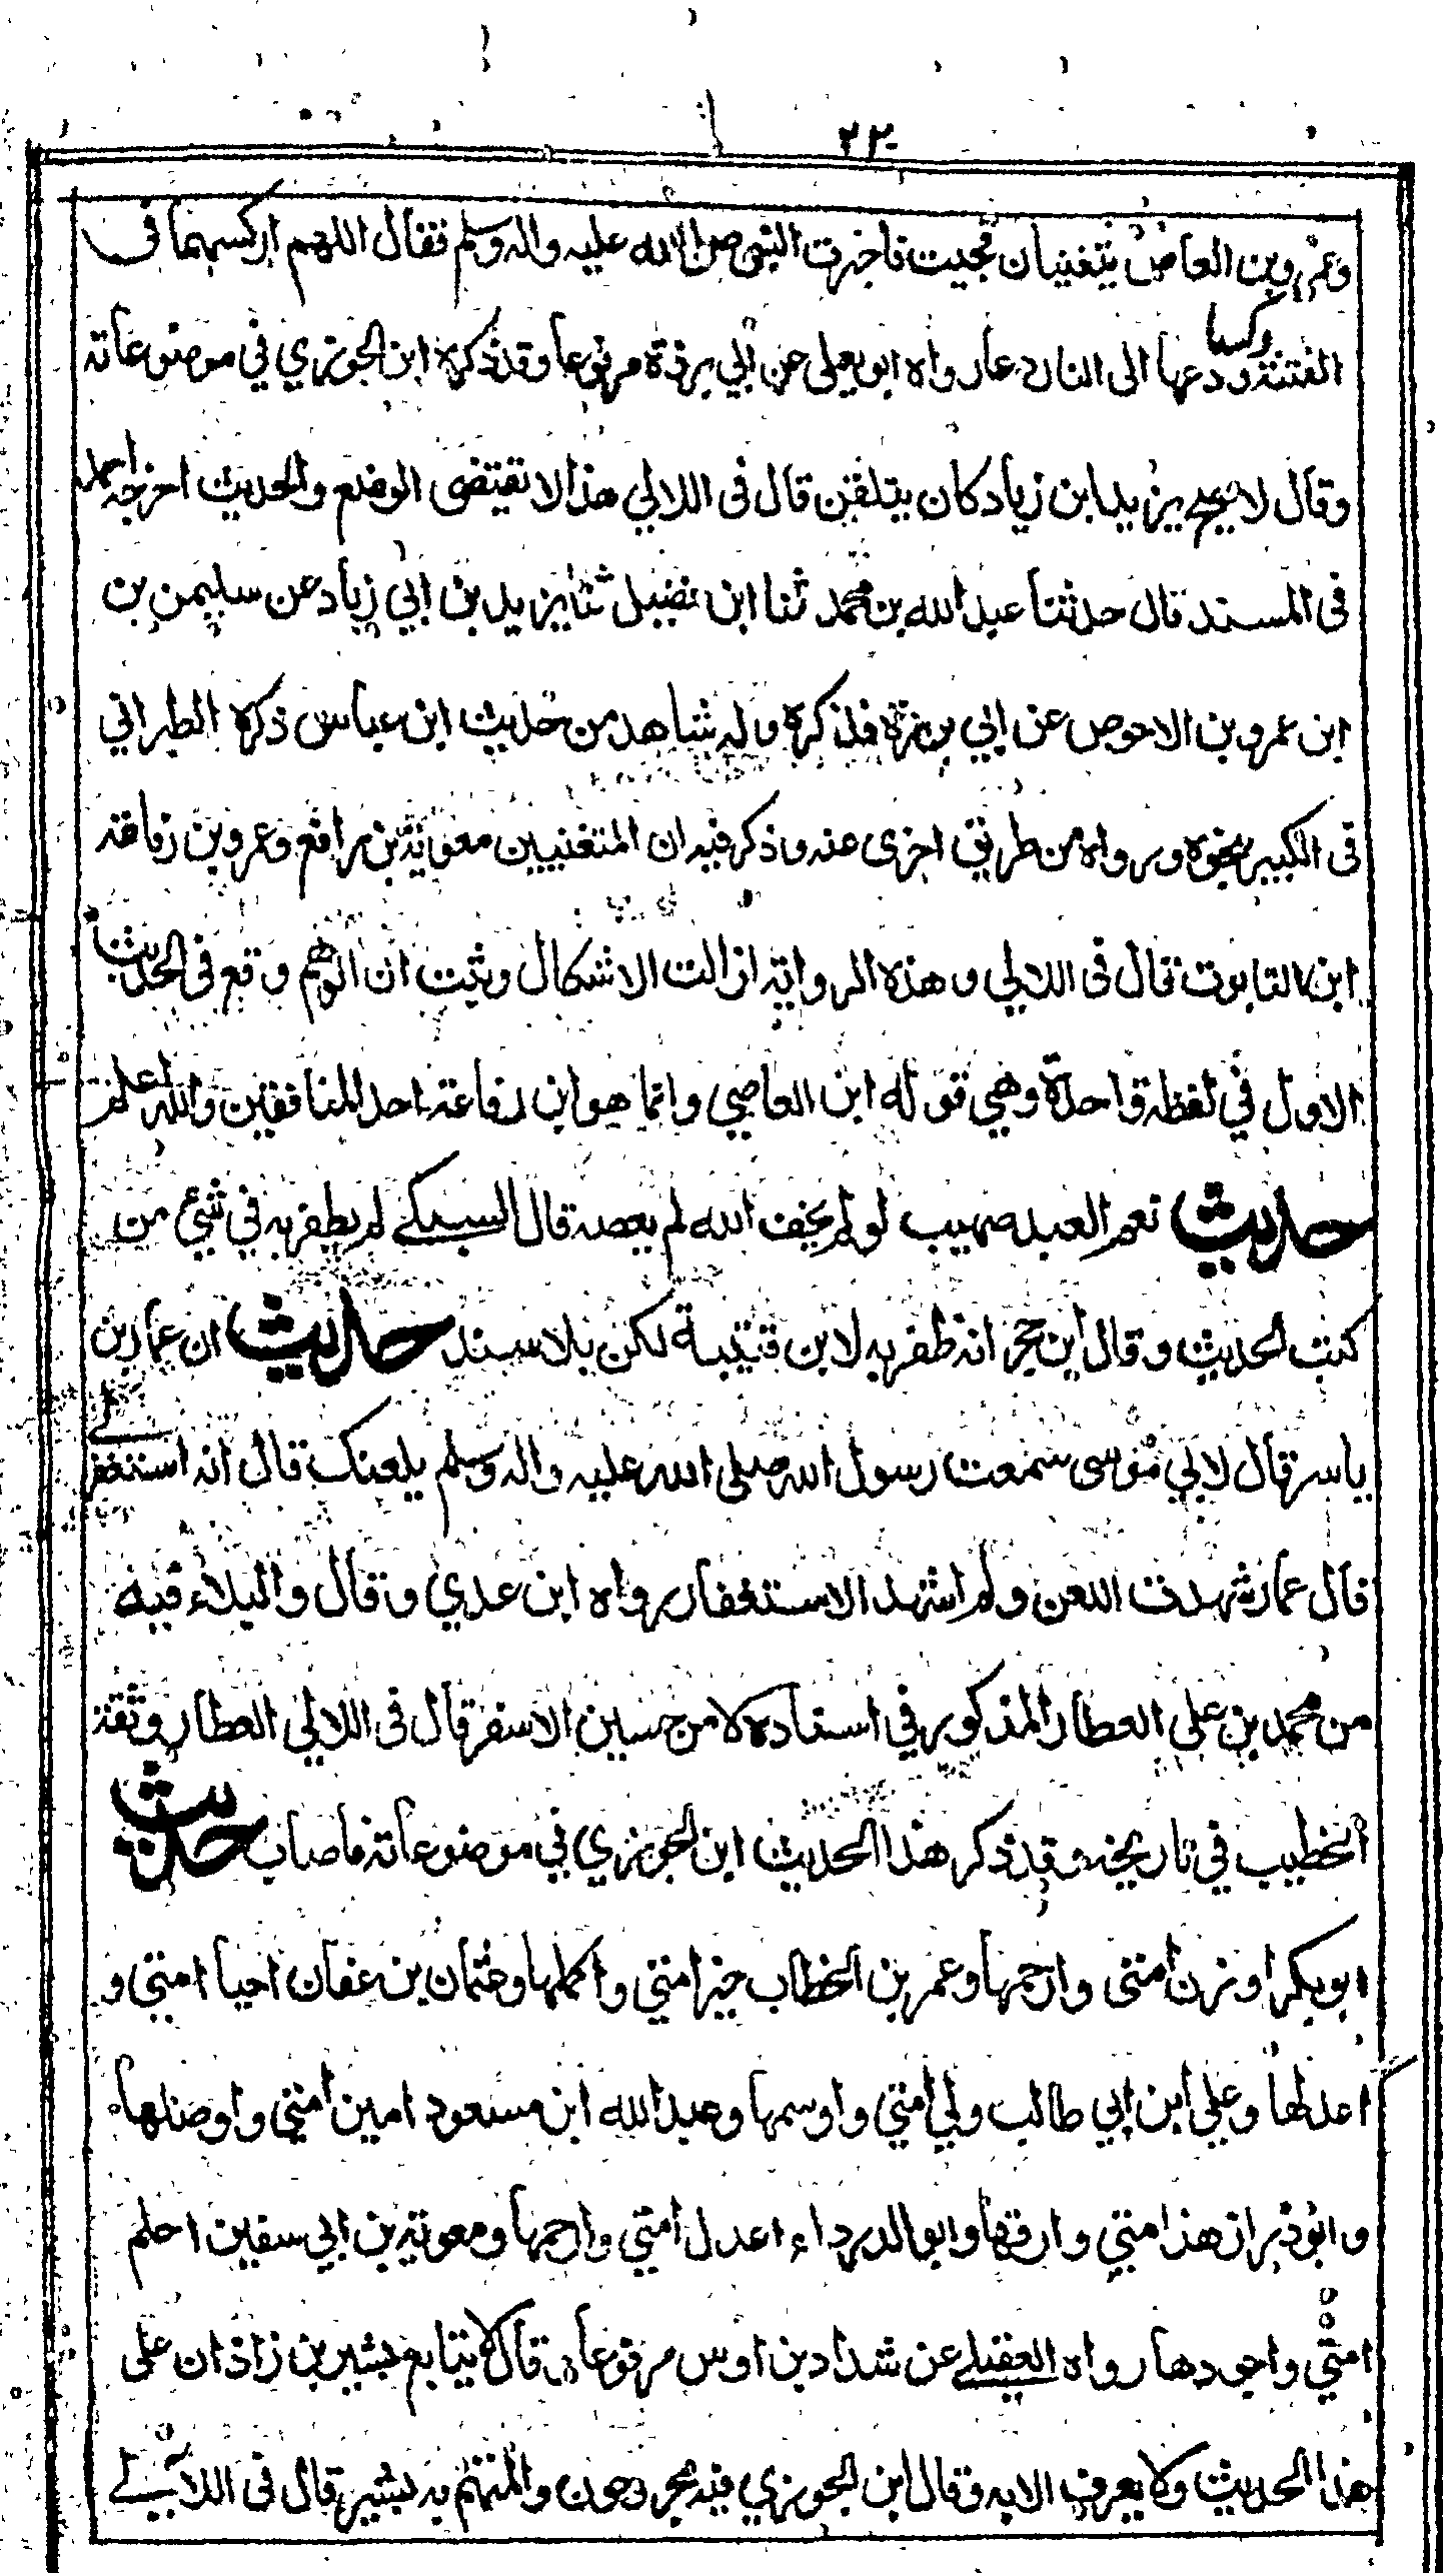 ٢٢٠
وعمرو بن العاص يتغنيان فجيت فاخبرت النبي صلى الله عليه واله وسلم فقال اللهم اركسهما في
الفتنة ركسا ودعها الى النار دعا رواه ابو يعلى عن ابي برزة مرفوعا وقد ذكره ابن الجوزي في موضوعاته
وقال لا يصح يزيد ابن زياد كان يتلقن قال في اللالي هذا لا يقتضى الوضع والحديث اخرجه احمد
في المسند قال حدثنا عبد الله بن محمد ثنا ابن فضيل ثنا يزيد بن ابي زياد عن سليمن بن
ابن عمرو بن الاحوص عن ابي برزة فذكره وله شاهد من حديث ابن عباس ذكره الطبراني
في الكبير بنحوه ورواه من طريق اخرى عنه وذكر فيه ان المتغنيين معوية بن رافع وعمرو بن رفاعة
ابن التابوت قال في اللالي وهذه الرواية ازالت الاشكال وثبت ان الوهم وقع في الحديث
الاول في لفظة واحدة وهي قوله ابن العاصي وانما هو ابن رفاعة احد المنافقين والله اعلم
حديث نعم العبد صهيب لو لم يخف الله لم يعصه قال السبكي لم يظفر به في شيء من
كتب الحديث وقال ابن حجر انه ظفر به لابن قتيبة لكن بلا سند حديث ان عمار بن
ياسر قال لابي موسى سمعت رسول الله صلى الله عليه واله وسلم يلعنك قال انه استغفر لي
قال عمار شهدت اللعن ولم اشهد الاستغفار رواه ابن عدي وقال والبلاء فيه
من محمد بن علي العطار المذكور في اسناده لا من حسين الاسقر قال في اللالي العطار وثقه
الخطيب في تاريخه وقد ذكر هذا الحديث ابن الجوزي في موضوعاته فاصاب حديث
ابو بكر اوزن امتي وارحمها وعمر بن الخطاب خير امتي واكملها وعثمان بن عفان احيا امتي و
اعدلها وعلي ابن ابي طالب ولي امتي واوسمها وعبد الله ابن مسعود امين امتي واوصلها
وابوذر ازهذ امتي وارقها وابو الدرداء اعدل امتي وارحمها ومعوية بن ابي سفين احلم
امتي واجودها رواه العقيلي عن شداد بن اوس مرفوعا وقال لا يتابع بشير بن زاذان على
هذا الحديث ولا يعرف الا به وقال ابن الجوزي فيه مجروحون والمتهم به بشير قال في اللآلي